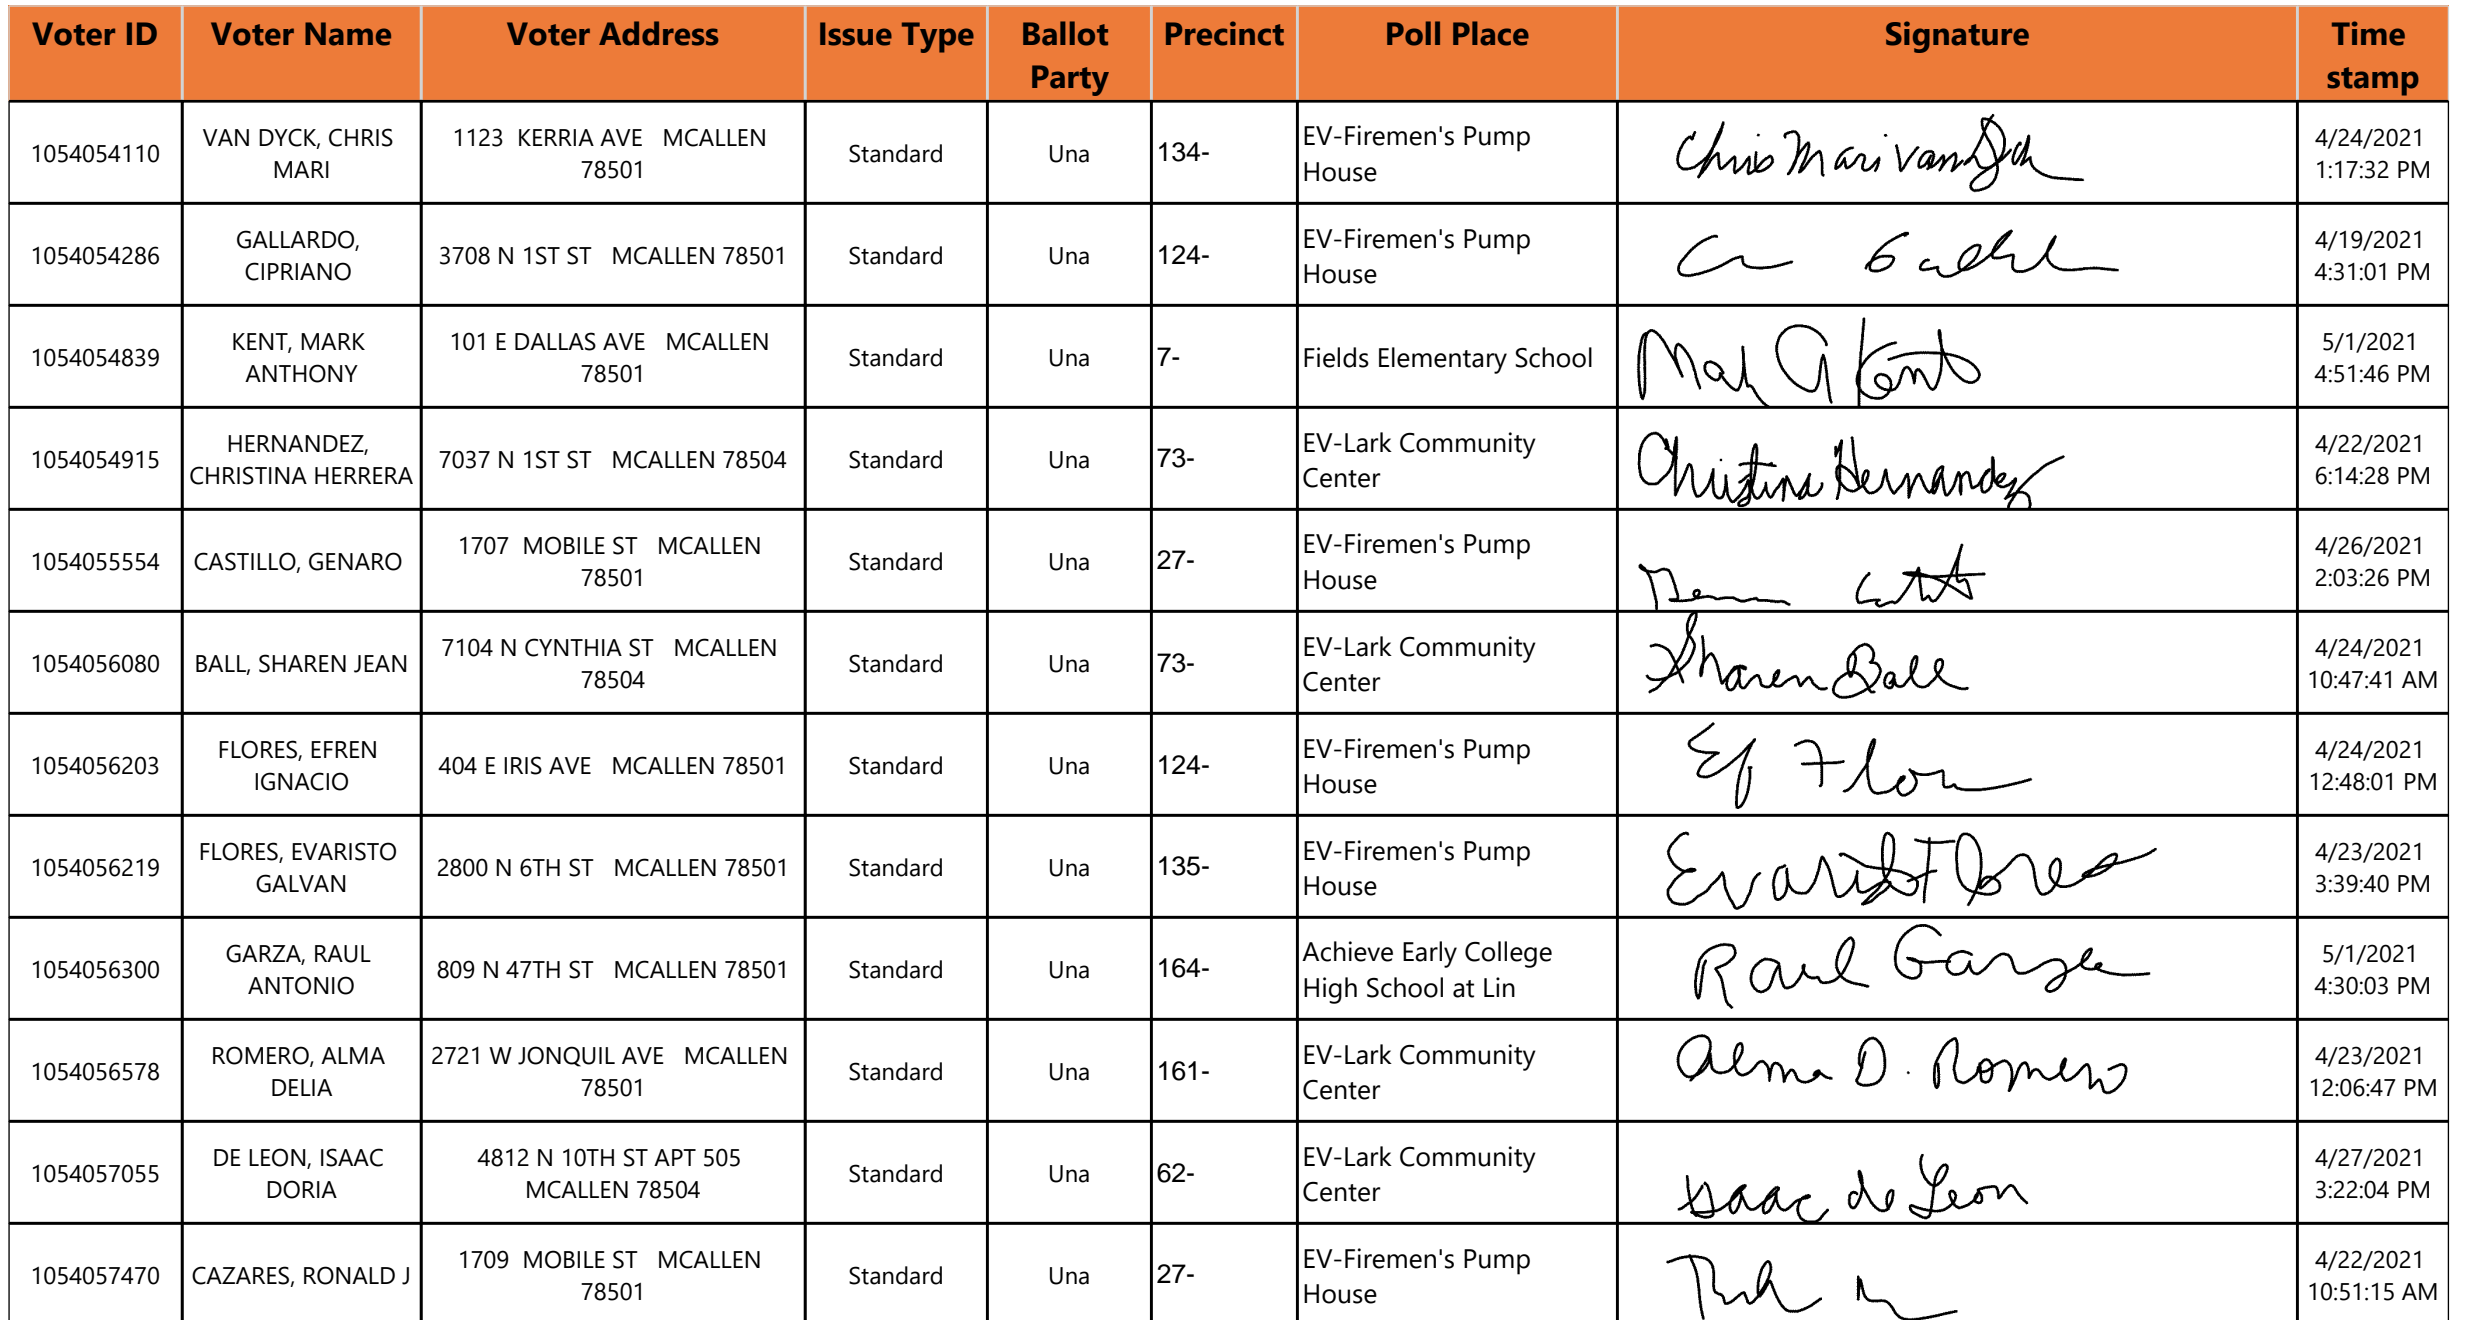 Voter ID Voter Name Voter Address Issue Type Ballot Party Precinct Poll Place Signature Time stamp
1054054110 VAN DYCK, CHRIS MARI 1123 KERRIA AVE MCALLEN 78501 Standard Una 134- EV-Firemen's Pump House Chris Mari Van Dyck 4/24/2021 1:17:32 PM
1054054286 GALLARDO, CIPRIANO 3708 N 1ST ST MCALLEN 78501 Standard Una 124- EV-Firemen's Pump House 4/19/2021 4:31:01 PM
1054054839 KENT, MARK ANTHONY 101 E DALLAS AVE MCALLEN 78501 Standard Una 7- Fields Elementary School Mark A Kent 5/1/2021 4:51:46 PM
1054054915 HERNANDEZ, CHRISTINA HERRERA 7037 N 1ST ST MCALLEN 78504 Standard Una 73- EV-Lark Community Center Christina Hernandez 4/22/2021 6:14:28 PM
1054055554 CASTILLO, GENARO 1707 MOBILE ST MCALLEN 78501 Standard Una 27- EV-Firemen's Pump House 4/26/2021 2:03:26 PM
1054056080 BALL, SHAREN JEAN 7104 N CYNTHIA ST MCALLEN 78504 Standard Una 73- EV-Lark Community Center Sharen Ball 4/24/2021 10:47:41 AM
1054056203 FLORES, EFREN IGNACIO 404 E IRIS AVE MCALLEN 78501 Standard Una 124- EV-Firemen's Pump House 4/24/2021 12:48:01 PM
1054056219 FLORES, EVARISTO GALVAN 2800 N 6TH ST MCALLEN 78501 Standard Una 135- EV-Firemen's Pump House Evaristo Flores 4/23/2021 3:39:40 PM
1054056300 GARZA, RAUL ANTONIO 809 N 47TH ST MCALLEN 78501 Standard Una 164- Achieve Early College High School at Lin Raul Garza 5/1/2021 4:30:03 PM
1054056578 ROMERO, ALMA DELIA 2721 W JONQUIL AVE MCALLEN 78501 Standard Una 161- EV-Lark Community Center Alma D. Romero 4/23/2021 12:06:47 PM
1054057055 DE LEON, ISAAC DORIA 4812 N 10TH ST APT 505 MCALLEN 78504 Standard Una 62- EV-Lark Community Center Isaac de Leon 4/27/2021 3:22:04 PM
1054057470 CAZARES, RONALD J 1709 MOBILE ST MCALLEN 78501 Standard Una 27- EV-Firemen's Pump House 4/22/2021 10:51:15 AM